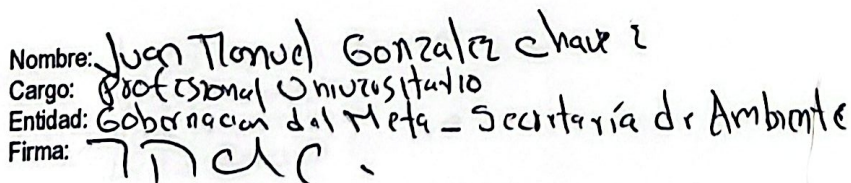 Nombre: Juan Manuel Gonzalez Chavez
Cargo: Profesional Universitario
Entidad: Gobernacion del Meta - Secretaría de Ambiente
Firma: